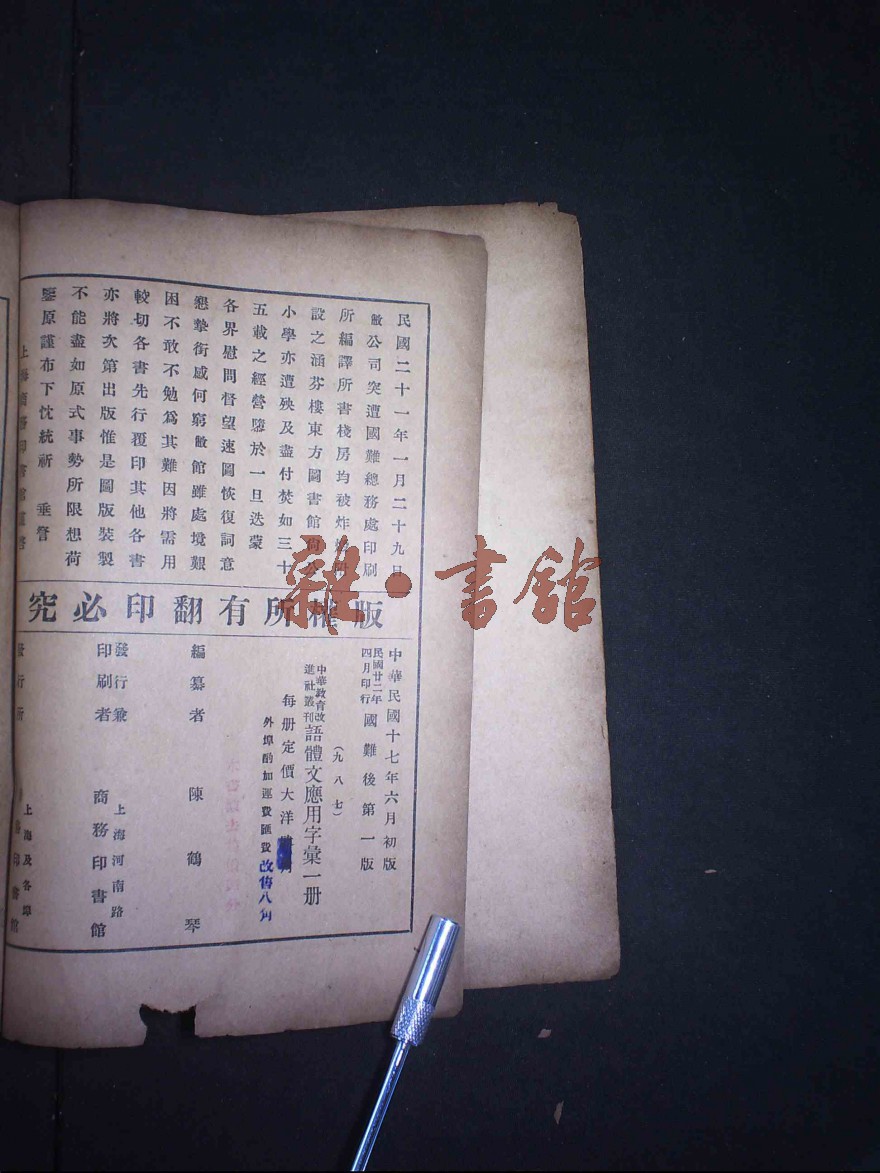 民國二十一年一月二十九日
敝公司突遭國難總務處印刷
所編譯所書棧房均被炸燬附
設之涵芬樓東方圖書館尚公
小學亦遭殃及盡付焚如三十
五載之經營隳於一旦迭蒙
各界慰問督望速圖恢復詞意
懇摯銜感何窮敝館雖處境艱
困不敢不勉爲其難因將需用
較切各書先行覆印其他各書
亦將次第出版惟是圖版裝製
不能盡如原式事勢所限想荷
鑒原謹布下忱統祈 垂詧
上海商務印書館謹啓
版權所有翻印必究
中華民國十七年六月初版
民國廿二年四月印行 國難後第一版
(九八七)
中華教育改進社叢刊 語體文應用字彙一册
每册定價大洋
外埠酌加運費匯費
改售八角
編纂者 陳鶴琴
發行兼印刷者 上海河南路 商務印書館
發行所 上海及各埠 商務印書館
雜·書館